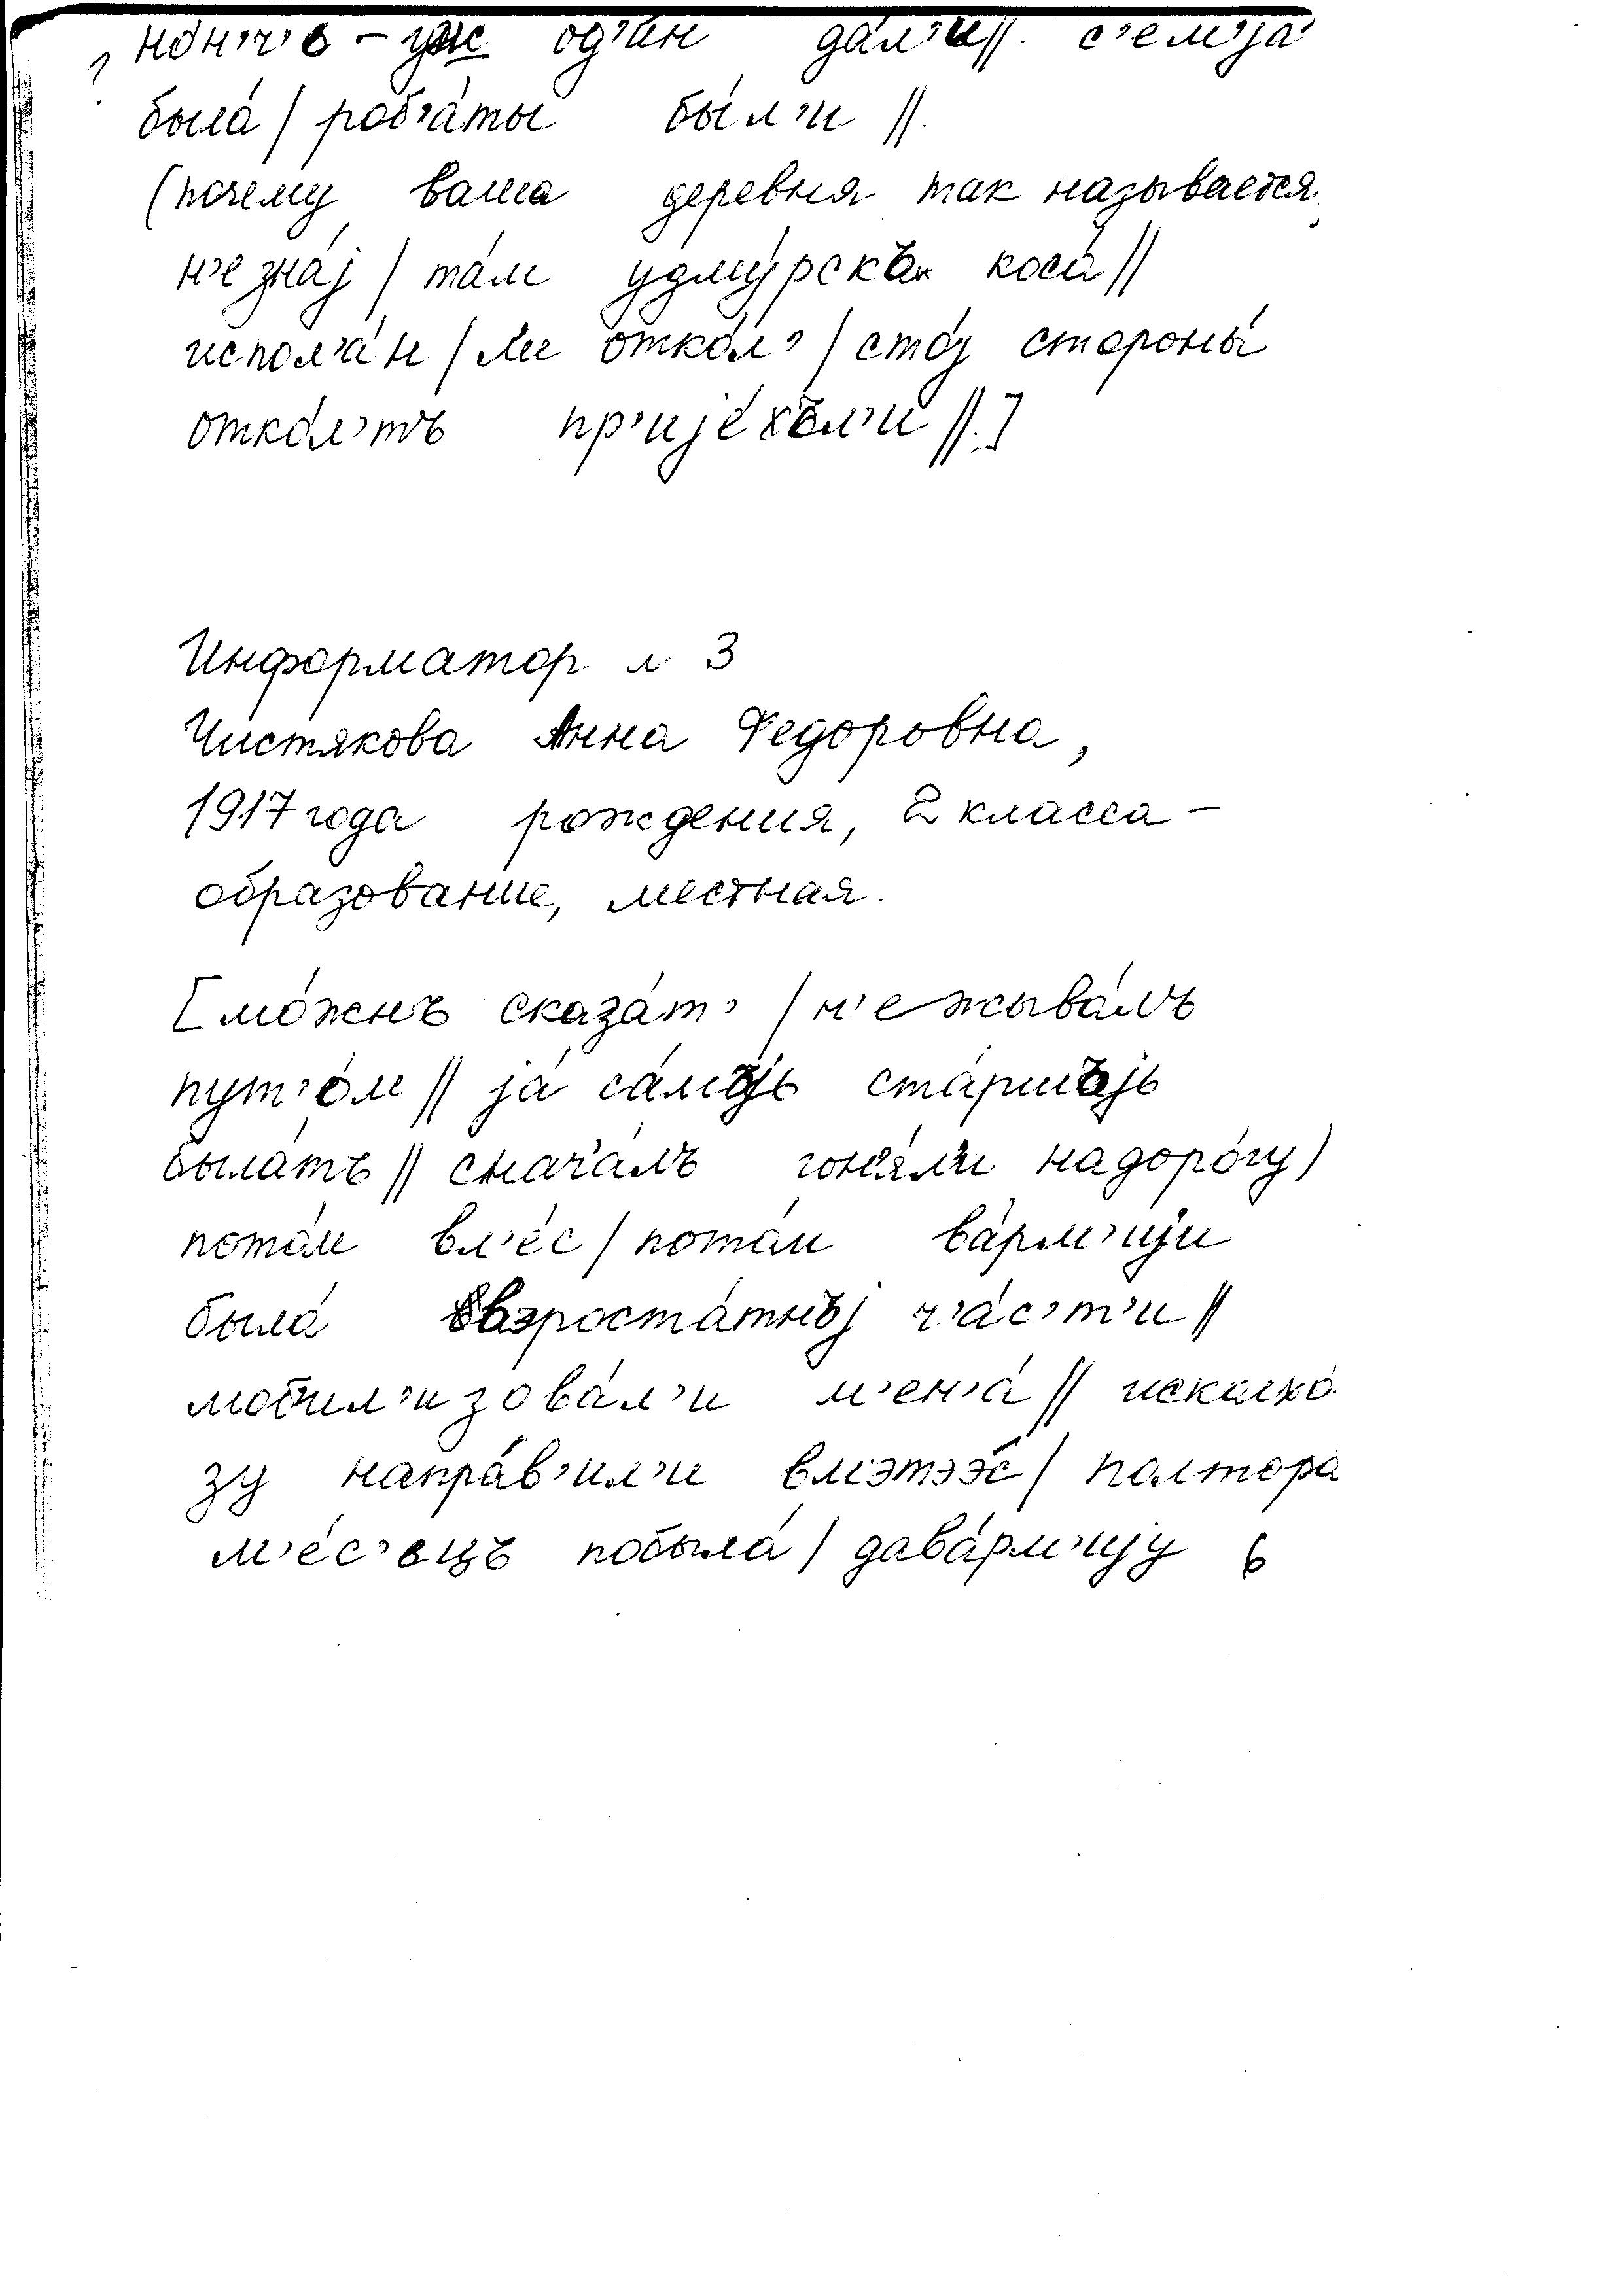 но́н'ч'о – уж од'и́н да́л'и //. с'ем'ја́
была́ / роб'а́ты бы́л'и //.
(почему ваша деревня так называется.
н'езна́ј / та́м удму́рскъя коса́ //
испол'а́н / ли отко́л' / сто́ј стороны́
отко́л'тъ пр'ије́хъл'и //.]
Информатор № 3
Чистякова Анна Федоровна,
1917 года рождения, 2 класса –
образование, местная.
[мо́жнъ сказа́т' / н'ежыва́лъ
пут'о́м // ја́ са́мъјь ста́ршъјь
была́тъ // снача́лъ гон'а́л'и надоро́гу /
пото́м вл'е́с / пото́м ва́рм'ији
была́ взроста́тнъј ч'а́с'т'и //
мобил'изова́л'и м'ен'а́ // исколхо́-
зу напра́в'ил'и вмэтээ́с / полтора
м'е́с'ьцъ побыла́ / дава́рм'ију в